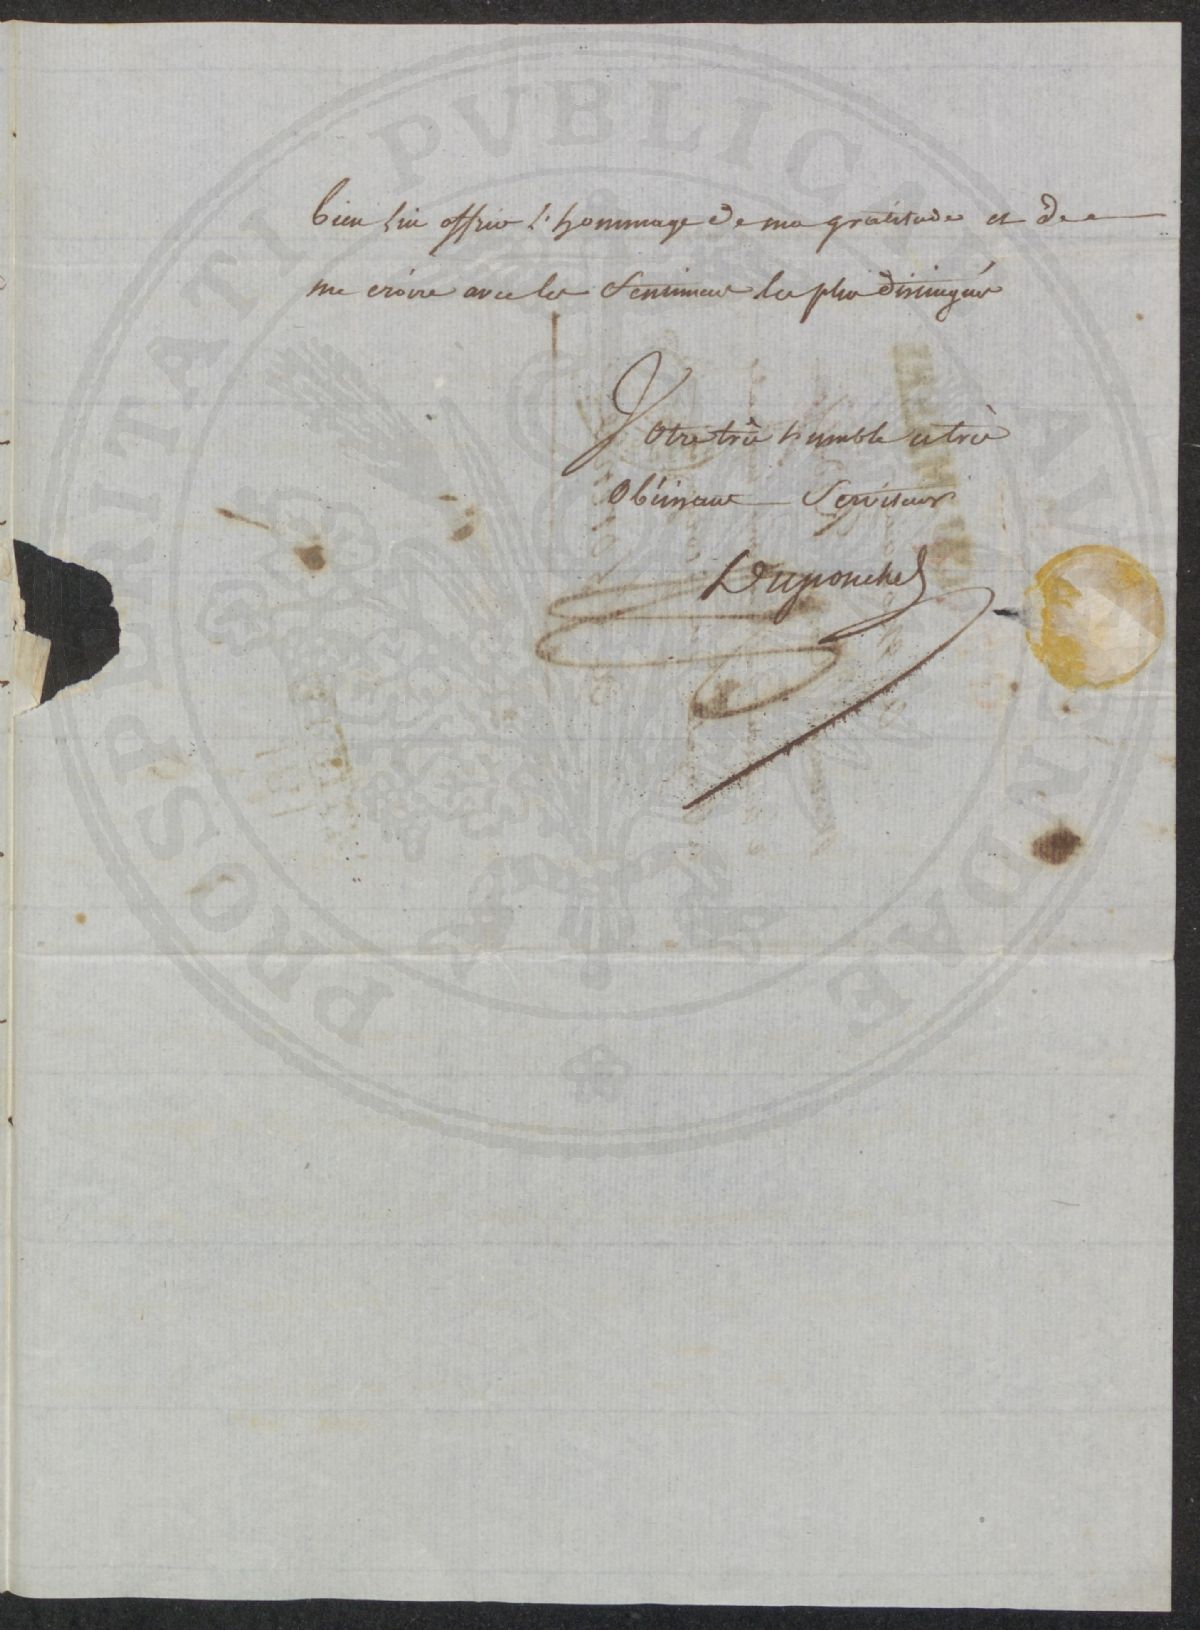 bien lui offrir l'hommage de ma gratitude et de
me croire avec les sentimens les plus distingués
Votre très humble et très
Obéissant Serviteur
Duponchel
PROSPERITATI PVBLICAE AVGENDAE